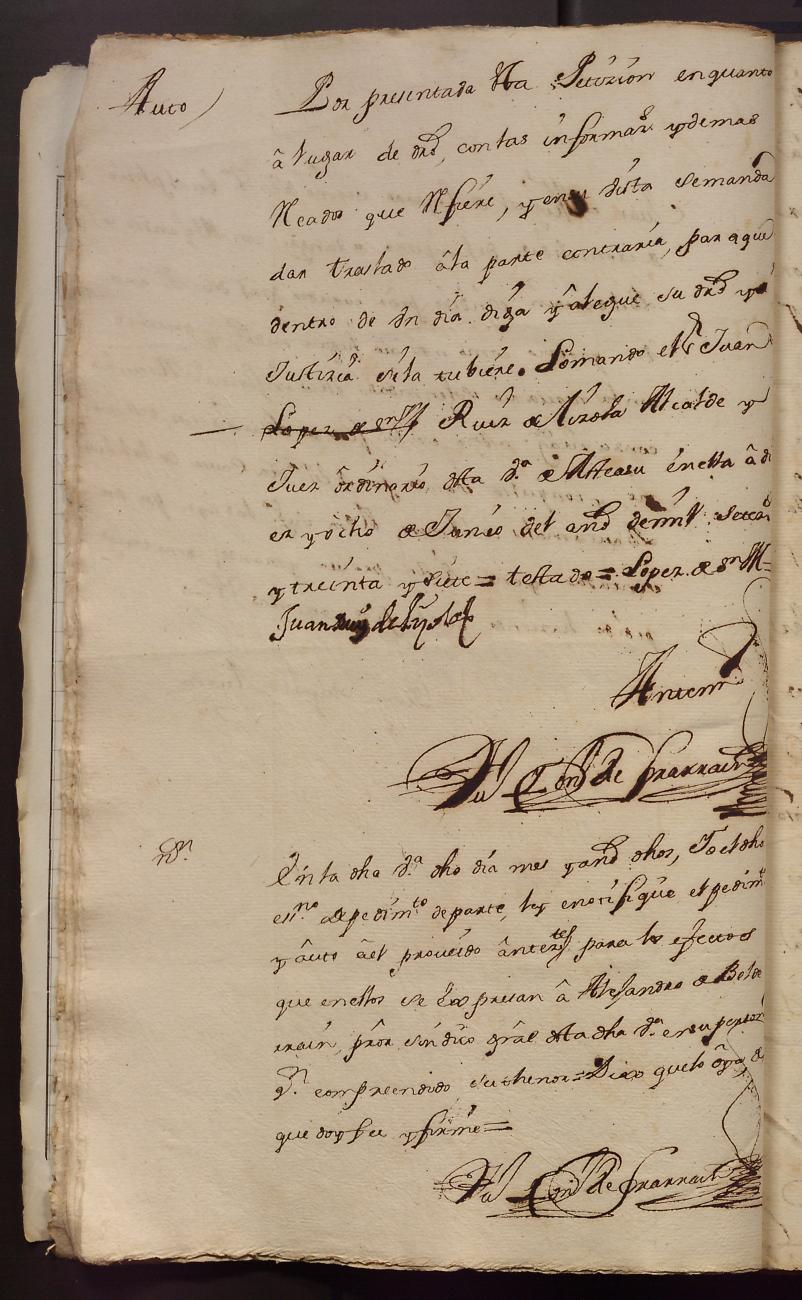 Auto
Por presentada esta Peticion en quanto
â lugar de dro, con las informaz.s y demas
Recados que Refiere, y en su vista demanda
dar traslado â la parte contraria, para que
dentro de Vn dia diga y âlegue su dro y
Justicia si la tubiere. Lo mando el Sr Juan
Lopez de Sn M Ruiz de Yrzola Alcalde y
Juez ôrdinario desta V.a de Alteasu en ella â di
ez y ocho de Junio del año de mil setez.s
y treinta y siete = testado = Lopez de Sn M =
Juan Ruiz de Yrzola
Antemi
de Ynarraein
n.on
En la dha V.a dho dia mes y año dhos, Yo el dho
ess.no de pedim.to de parte, ley e notifique el pedim.to
y âuto âel proveido ântez.tes para los efectos
que en ellos se êxpresan â Alejandro de Belde
rrain, prôr sindico grâl desta dha V.a en su persona
q.n comprendido su thenor = Dixo que lo oya, de
que doy fee y firme =
de Ynarraein